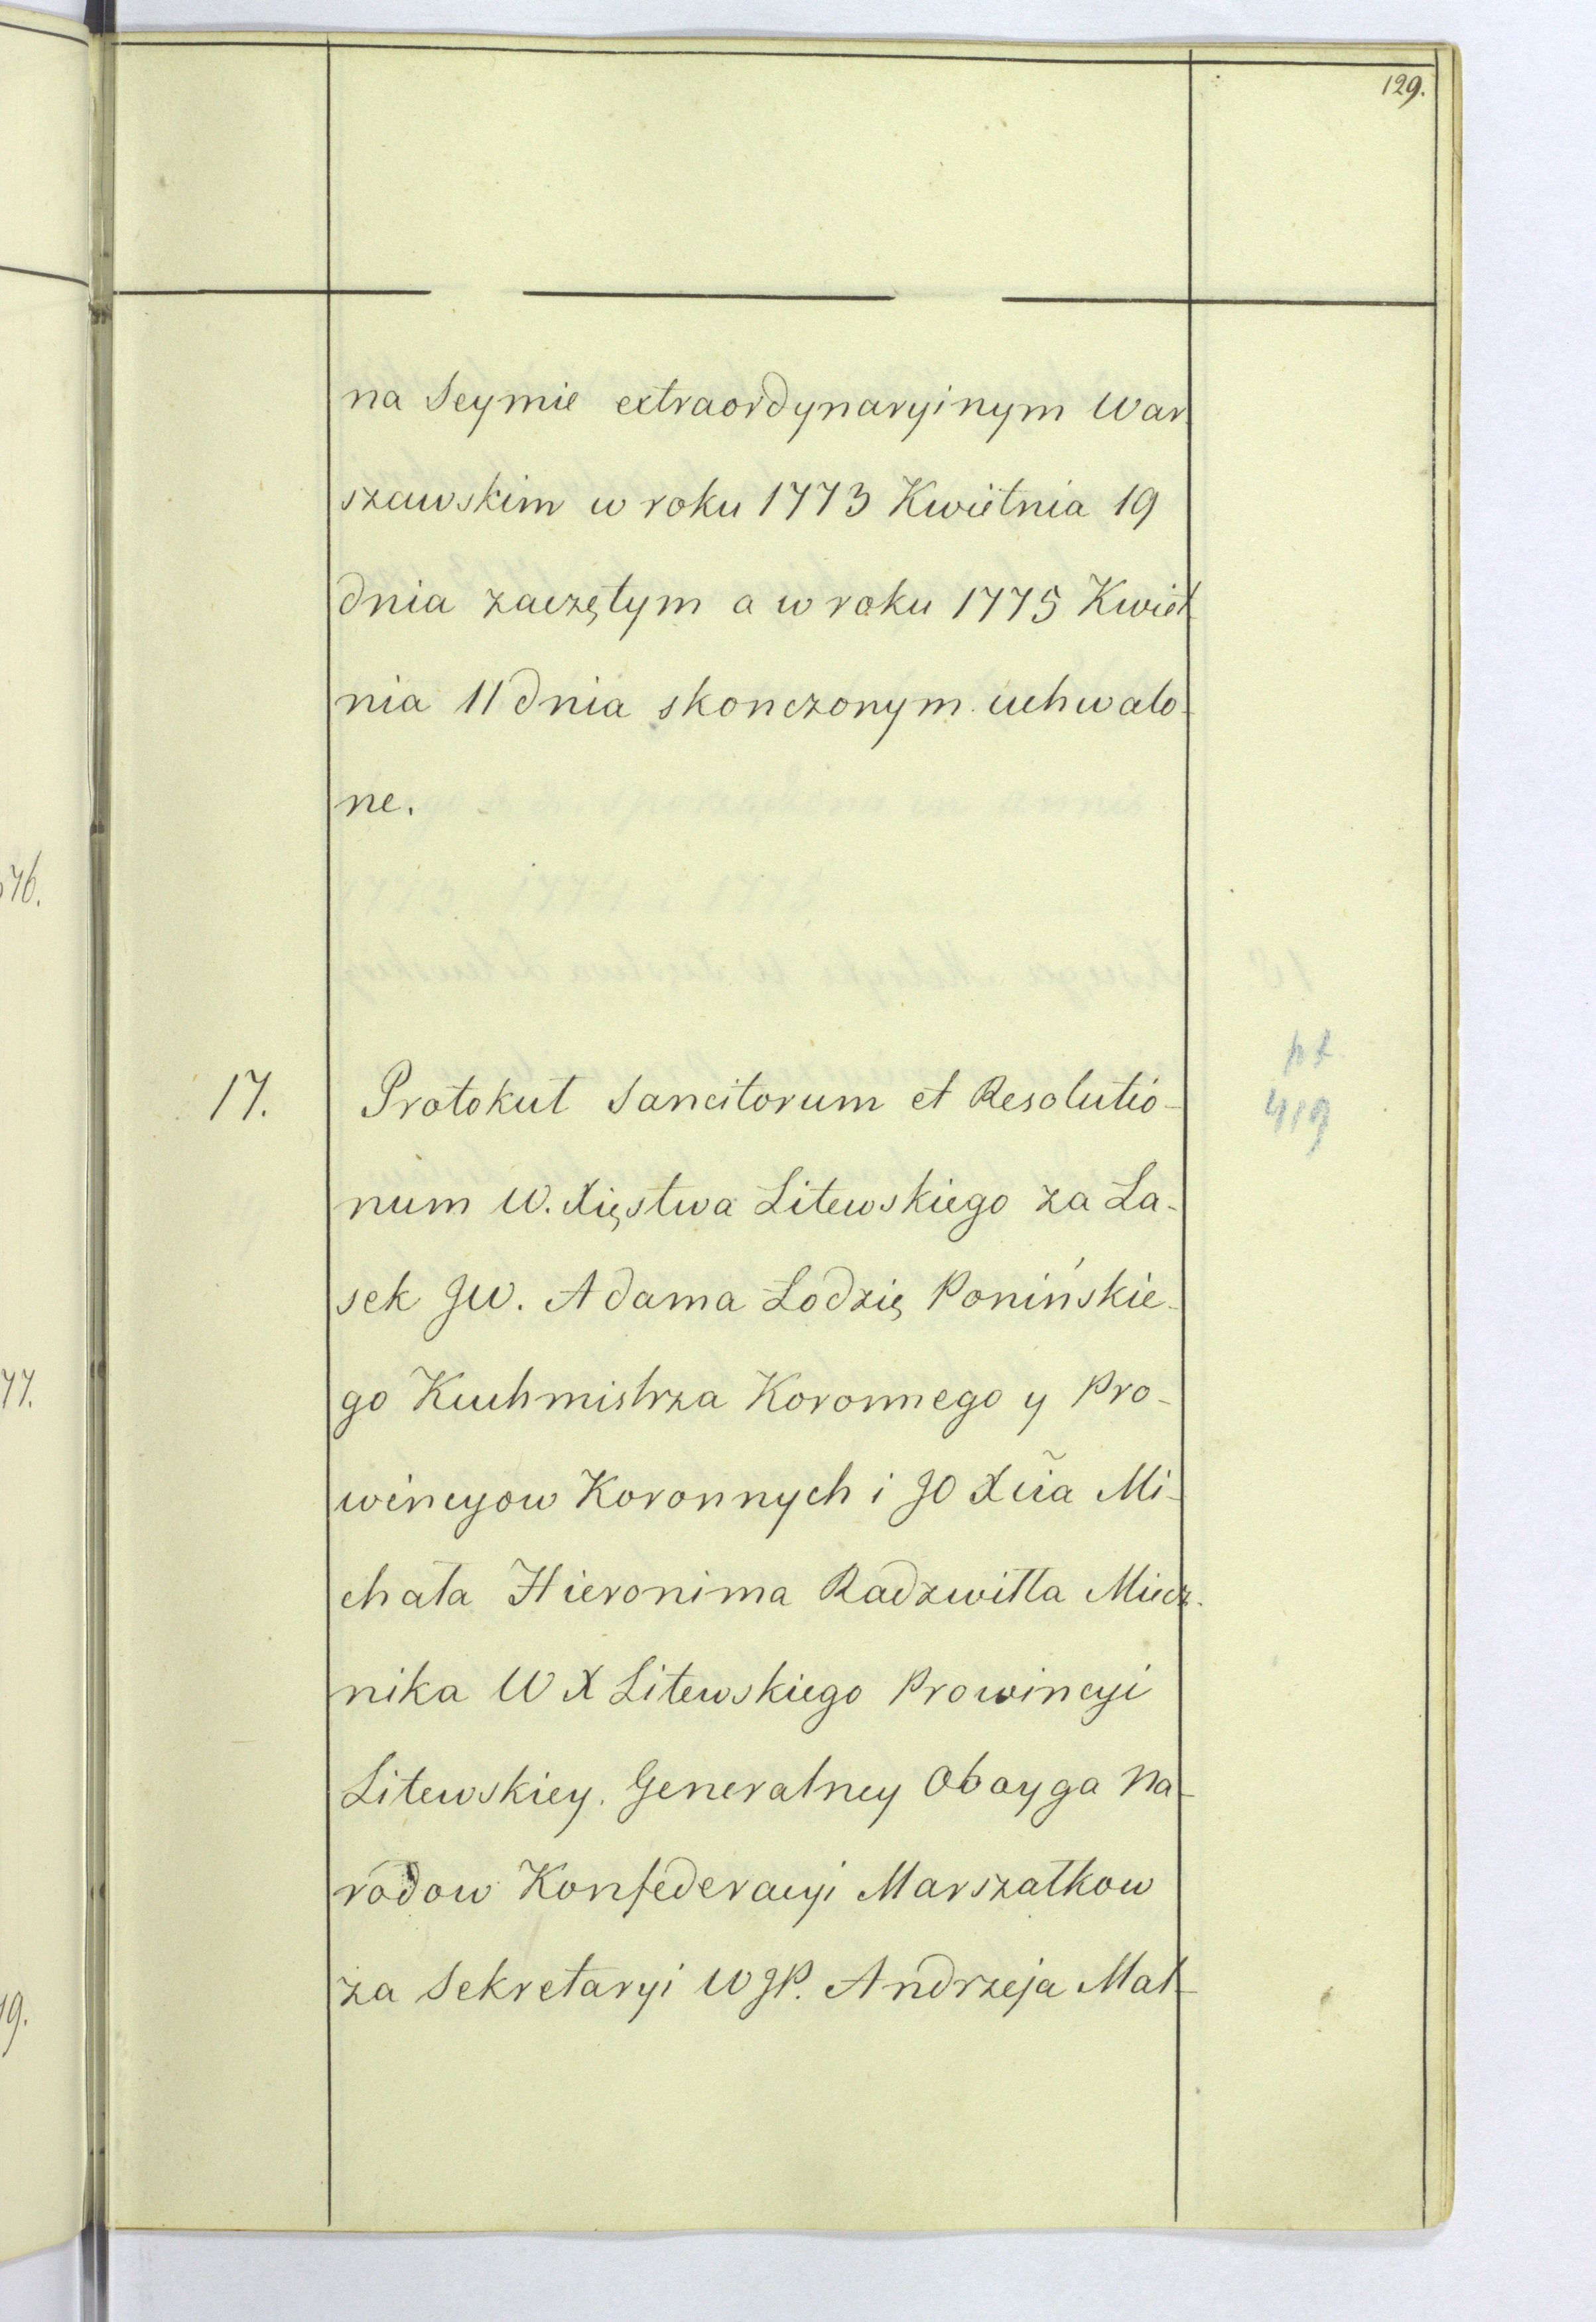 129.
na Seymie extraordynaryinym War
szawskim w roku 1773 Kwietnia 19
dnia zaczętym a w roku 1775 Kwiet
nia 11 dnia skonczonym uchwalo-
ne.
17. Protokuł Sancitorum et Resolutio-
num W. Xięstwa Litewskiego za La-
sek JW. Adama Lodzię Ponińskie-
go Kuchmistrza Koronnego y Pro-
wincyow Koronnych i JO Xcia Mi-
chała Hieronima Radzwiłła Miecz-
nika W X Litewskiego Prowincyi
Litewskiey. Generalney Oboyga Na-
rodow Konfederacyi Marszałkow
za Sekretaryi WJP. Andrzeja Mat-
419
76.
77.
79.